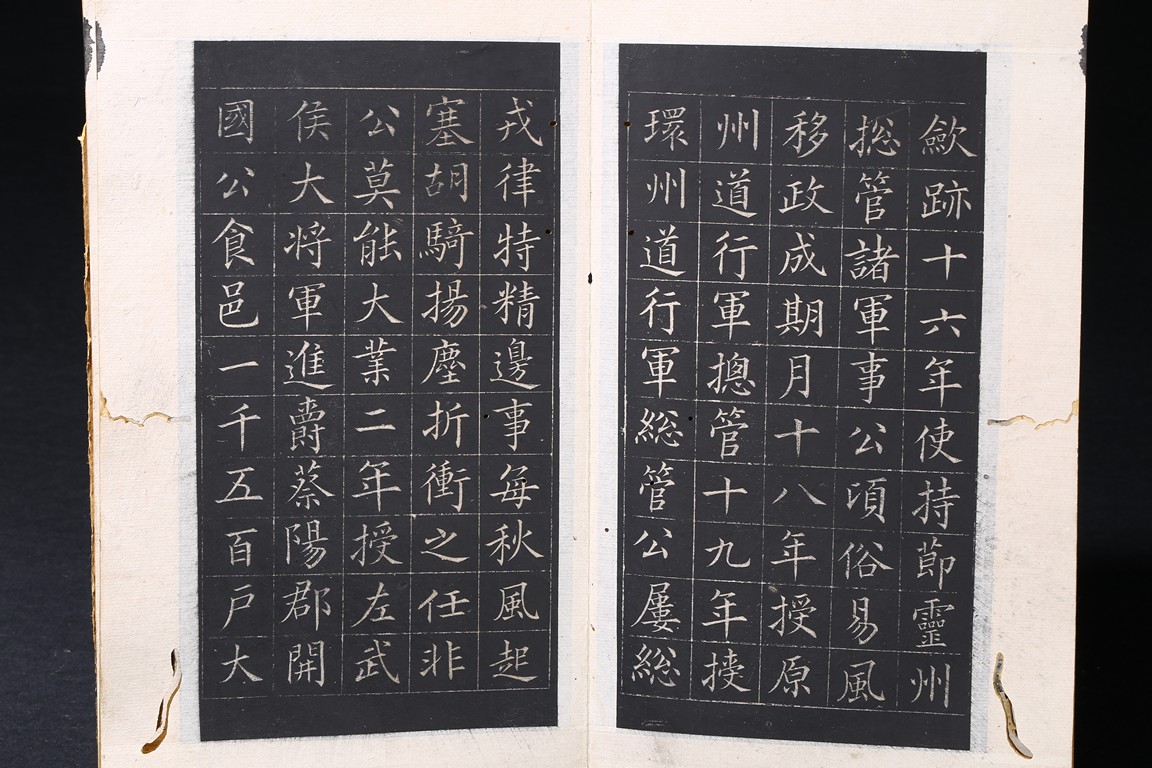 歛跡十六年使持莭靈州
揔管諸軍事公頃俗易風
移政成期月十八年授原
州道行軍摠管十九年授
環州道行軍総管公屢総
戎律特精邊事每秋風起
塞胡騎揚塵折衝之任非
公莫能大業二年授左武
侯大将軍進爵蔡陽郡開
國公食邑一千五百戶大